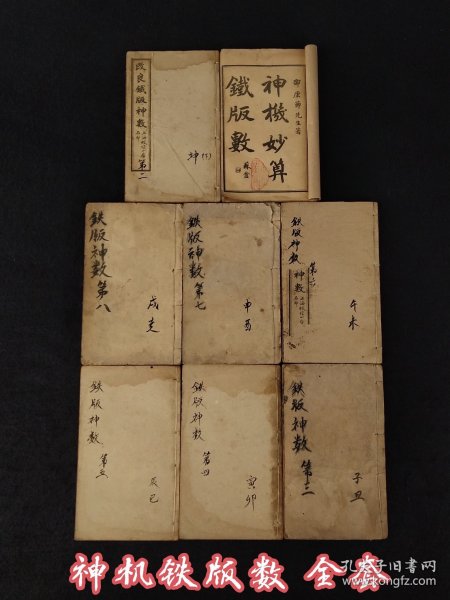 改良鐵版神數
上海校經山房石印
第二
坤
邵康節先生著
神機妙算
鐵版數
鉄版神数第八
戌亥
鉄版神数第七
申酉
鉄版神数
第六
神數
午未
鉄版神数
第五
辰巳
鉄版神数
第四
寅卯
鉄版神数
第三
子丑
神机铁版数 全套
孔夫子旧书网
www.kongfz.com